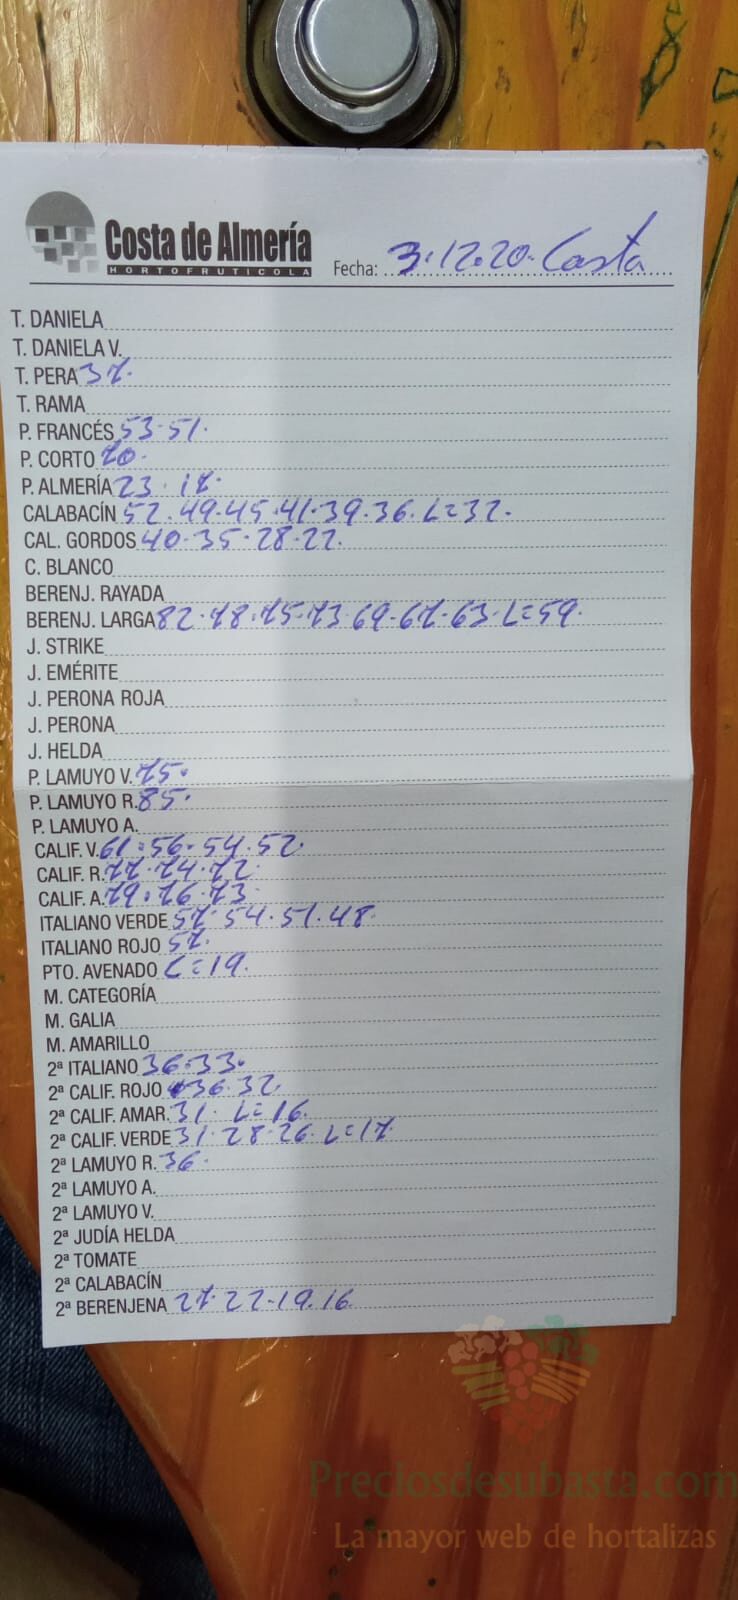 Costa de Almería
HORTOFRUTICOLA
Fecha: 3.12.20. Costa
T. DANIELA
T. DANIELA V.
T. PERA 37.
T. RAMA
P. FRANCÉS 53.51.
P. CORTO 70.
P. ALMERÍA 23.17.
CALABACÍN 52.49.45.41.39.36.L=32.
CAL. GORDOS 40.35.28.22.
C. BLANCO
BERENJ. RAYADA
BERENJ. LARGA 82.78.75.73.69.67.63.L=59.
J. STRIKE
J. EMÉRITE
J. PERONA ROJA
J. PERONA
J. HELDA
P. LAMUYO V. 75.
P. LAMUYO R. 85.
P. LAMUYO A.
CALIF. V. 61.56.54.52.
CALIF. R. 77.74.72
CALIF. A. 79.76.73
ITALIANO VERDE 57.54.51.48.
ITALIANO ROJO 57.
PTO. AVENADO L=19.
M. CATEGORÍA
M. GALIA
M. AMARILLO
2ª ITALIANO 36.33.
2ª CALIF. ROJO 36.32.
2ª CALIF. AMAR. 31. L=16.
2ª CALIF. VERDE 31.28.26.L=17.
2ª LAMUYO R. 36.
2ª LAMUYO A.
2ª LAMUYO V.
2ª JUDÍA HELDA
2ª TOMATE
2ª CALABACÍN
2ª BERENJENA 27.22.19.16.
Preciosdesubasta.com
La mayor web de hortalizas